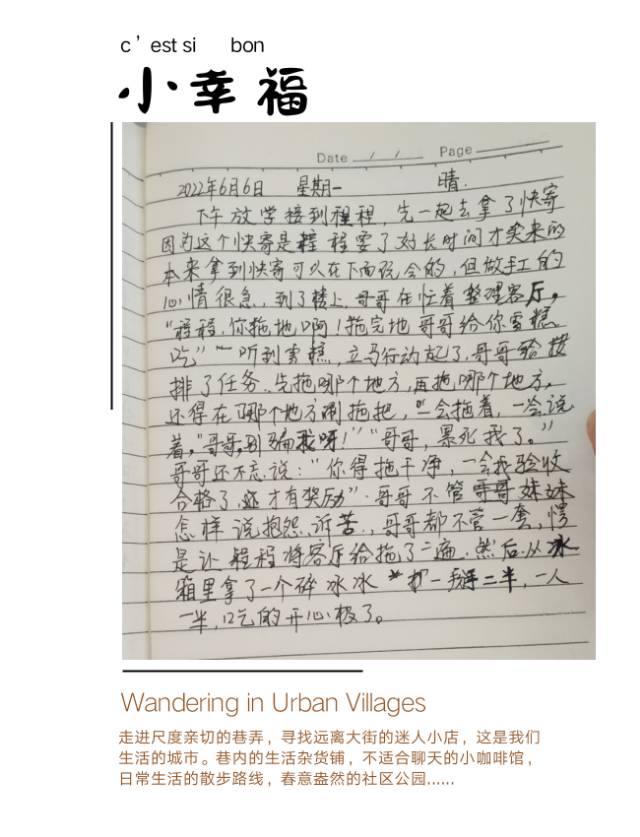 c’est si bon
小幸福
Date / / Page
2022年6月6日 星期一 晴.
下午放学接到程程，先一起去拿了快寄
因为这个快寄是程程要了好长时间才买来的
本来拿到快寄可以在下面玩会的，但做手工的
心情很急，到了楼上，哥哥在忙着整理客厅，
“程程，你拖地啊！拖完地哥哥给你雪糕
吃”一听到雪糕，立马行动起了，哥哥给安
排了任务，先拖哪个地方，再拖哪个地方，
还得在哪个地方涮拖把，一会拖着，一会说
着，“哥哥，别骗我呀！”“哥哥，累死我了。”
哥哥还不忘说：“你得拖干净，一会我验收
合格了，还才有奖励”．哥哥不管妹妹
怎样说抱怨、诉苦，哥哥都不管一套，愣
是让程程将客厅给拖了二遍．然后从冰
箱里拿了一个碎冰冰 一掰二半，一人
一半，吃的开心极了。
Wandering in Urban Villages
走进尺度亲切的巷弄，寻找远离大街的迷人小店，这是我们
生活的城市。巷内的生活杂货铺，不适合聊天的小咖啡馆，
日常生活的散步路线，春意盎然的社区公园......